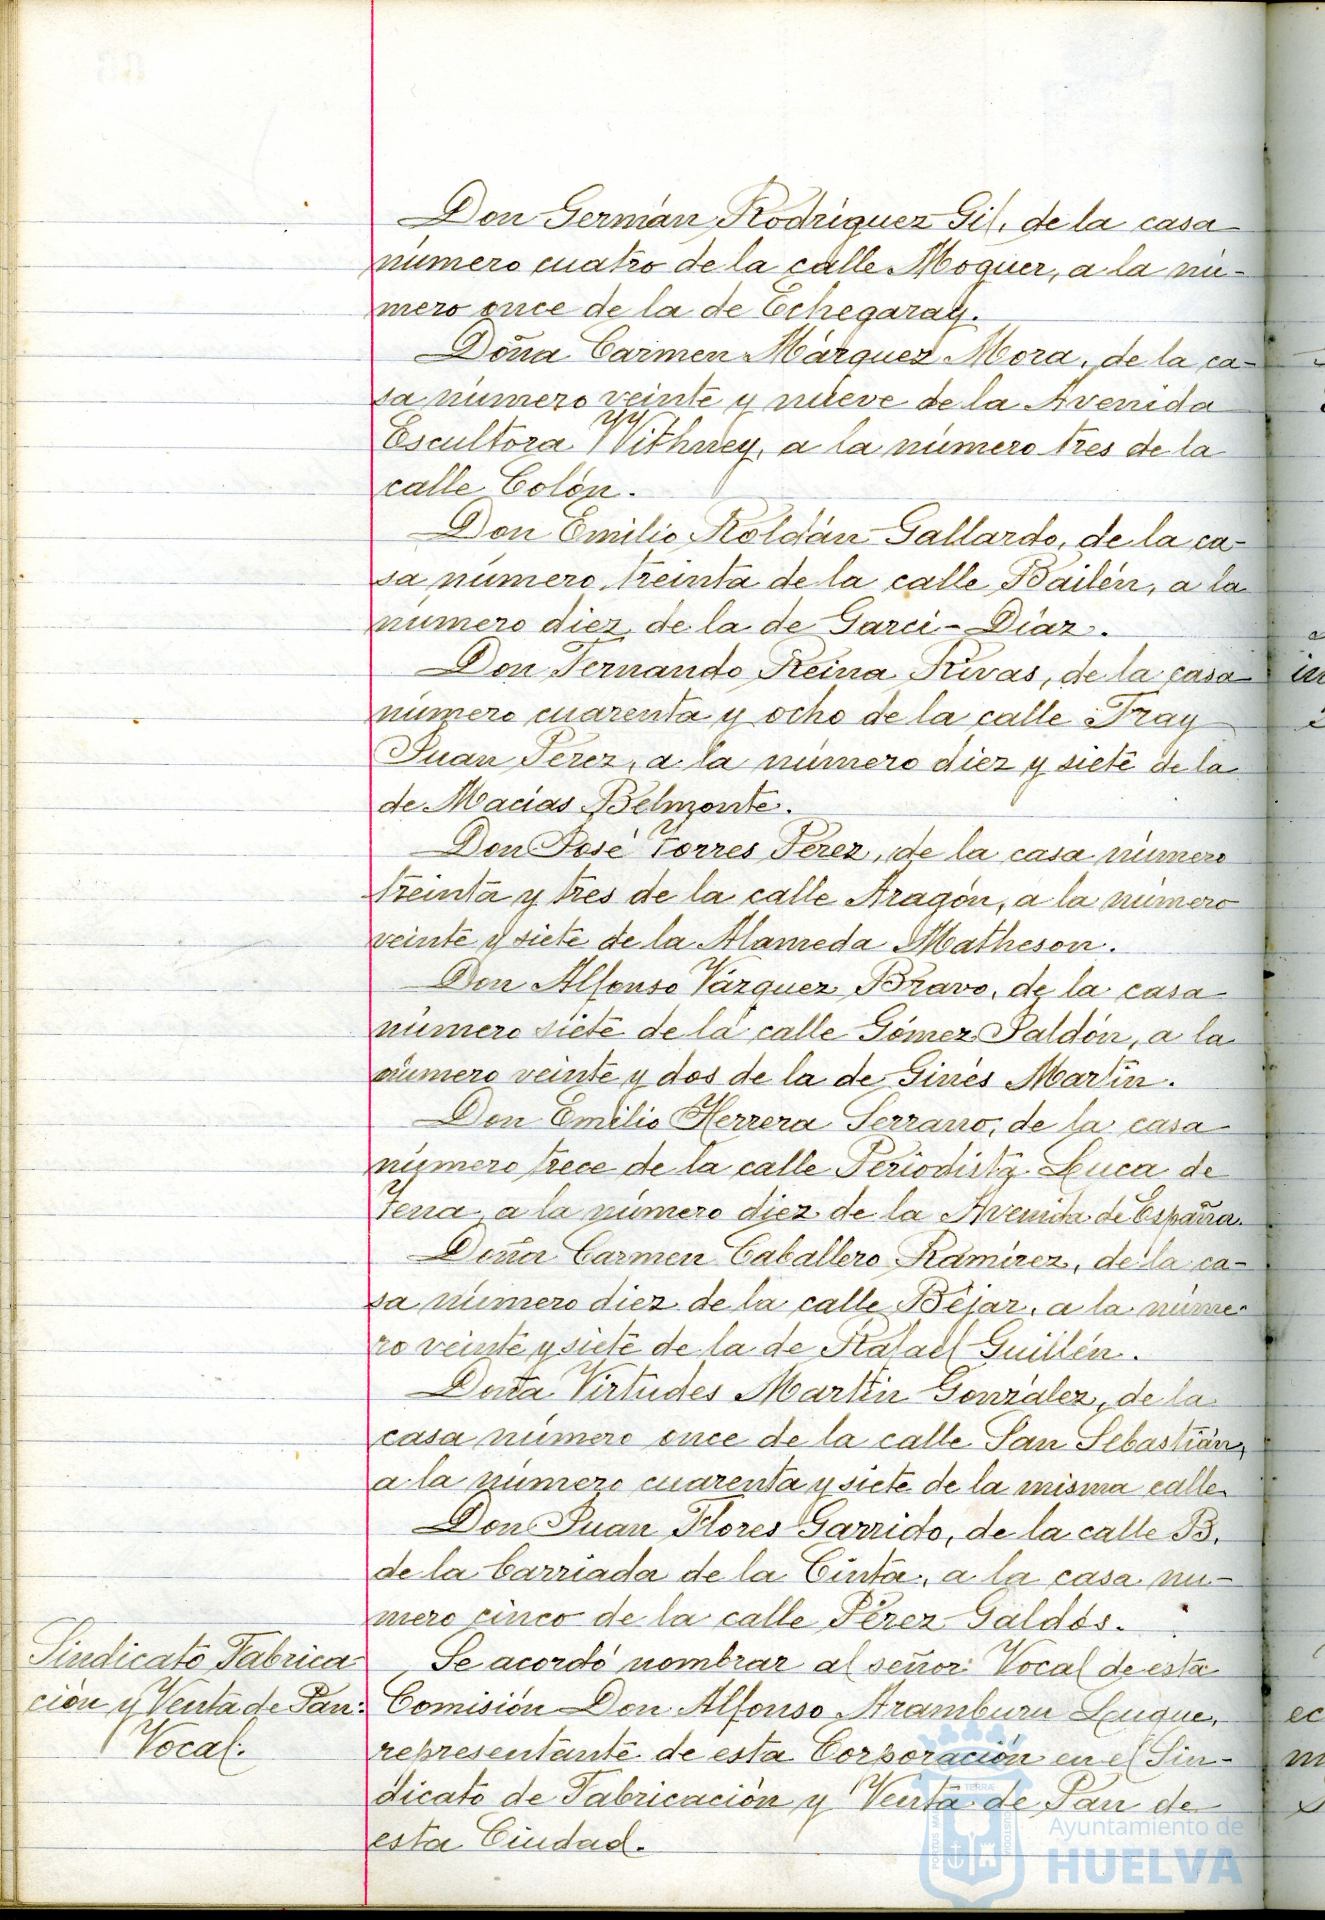 Don Germán Rodríguez Gil, de la casa
número cuatro de la calle Moguer, a la nú-
mero once de la de Echegaray.
Doña Carmen Márquez Mora, de la ca-
sa número veinte y nueve de la Avenida
Escultora Withney, a la número tres de la
calle Colón.
Don Emilio Roldán Gallardo, de la ca-
sa número treinta de la calle Bailén, a la
número diez de la de Garci-Díaz.
Don Fernando Reina Rivas, de la casa
número cuarenta y ocho de la calle Fray
Juan Pérez, a la número diez y siete de la
de Macías Belmonte.
Don José Torres Pérez, de la casa número
treinta y tres de la calle Aragón, a la número
veinte y siete de la Alameda Matheson.
Don Alfonso Vázquez Bravo, de la casa
número siete de la calle Gómez Jaldón, a la
número veinte y dos de la de Ginés Martín.
Don Emilio Herrera Serrano, de la casa
número trece de la calle Periodista Luca de
Tena, a la número diez de la Avenida de España.
Doña Carmen Caballero Ramírez, de la ca-
sa número diez de la calle Béjar, a la núme-
ro veinte y siete de la de Rafael Guillén.
Doña Virtudes Martín González, de la
casa número once de la calle San Sebastián,
a la número cuarenta y siete de la misma calle.
Don Juan Flores Garrido, de la calle B.
de la barriada de la Cinta, a la casa nú-
mero cinco de la calle Pérez Galdós.
Sindicato Fabrica-
ción y Venta de Pan:
Vocal.
Se acordó nombrar al señor Vocal de esta
Comisión Don Alfonso Aramburu Luque,
representante de esta Corporación en el Sin-
dicato de Fabricación y Venta de Pan de
esta Ciudad.
Ayuntamiento de
HUELVA